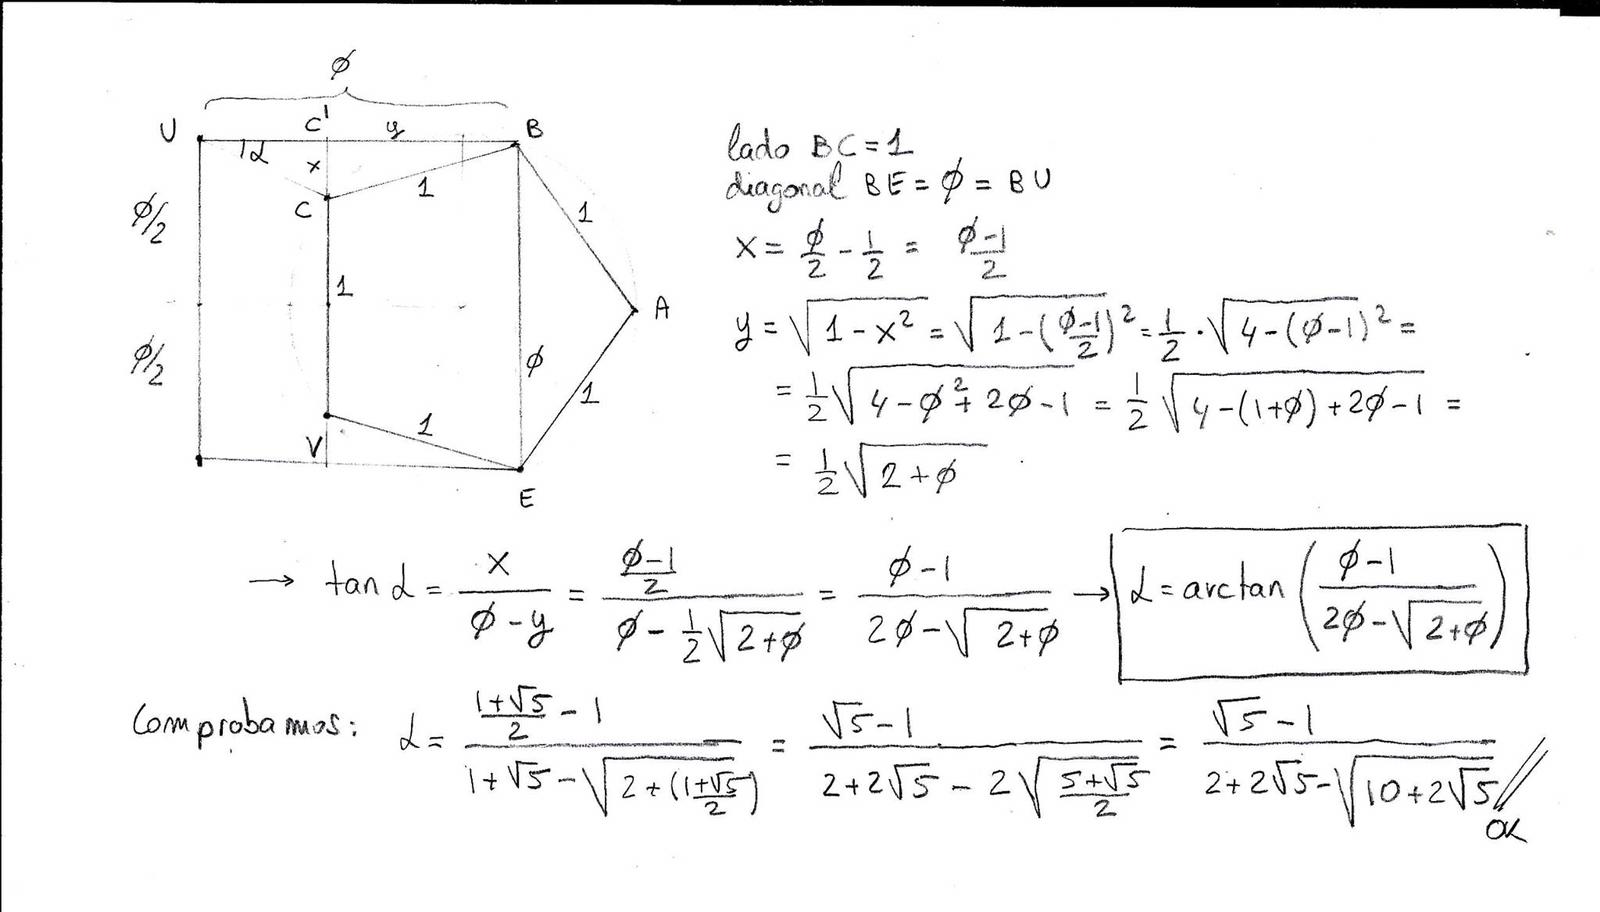 ϕ
U C' y B
α x
C 1 1
ϕ/2
1 A
ϕ/2 ϕ
1 1
V
E
lado BC = 1
diagonal BE = ϕ = BU
x = ϕ/2 - 1/2 = (ϕ-1)/2
y = √(1-x²) = √(1-((ϕ-1)/2)²) = 1/2 · √(4-(ϕ-1)²) =
= 1/2 √(4-ϕ²+2ϕ-1) = 1/2 √(4-(1+ϕ)+2ϕ-1) =
= 1/2 √(2+ϕ)
→ tan α = x/(ϕ-y) = ((ϕ-1)/2)/(ϕ - 1/2 √(2+ϕ)) = (ϕ-1)/(2ϕ-√(2+ϕ)) → α = arctan((ϕ-1)/(2ϕ-√(2+ϕ)))
Comprobamos: α = ((1+√5)/2 - 1)/(1+√5-√(2+((1+√5)/2))) = (√5-1)/(2+2√5-2√((5+√5)/2)) = (√5-1)/(2+2√5-√(10+2√5)) //
OK